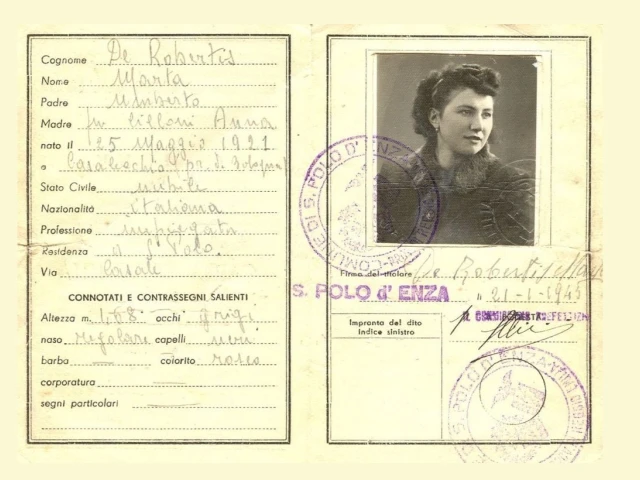 Cognome De Robertis
Nome Marta
Padre Umberto
Madre fu Cilloni Anna
nato il 25 Maggio 1921
a Casalecchio pr. di Bologna
Stato Civile nubile
Nazionalità italiana
Professione impiegata
Residenza a S. Polo
Via Casale
CONNOTATI E CONTRASSEGNI SALIENTI
Altezza m. 1,68 occhi grigi
naso regolare capelli neri
barba — colorito roseo
corporatura —
segni particolari —
COMUNE DI S. POLO D'ENZA
Firma del titolare De Robertis Marta
S. POLO d' ENZA li 21-1-1945
IL COMMISSARIO PREFETTIZIO
Impronta del dito
indice sinistro
S. POLO D'ENZA